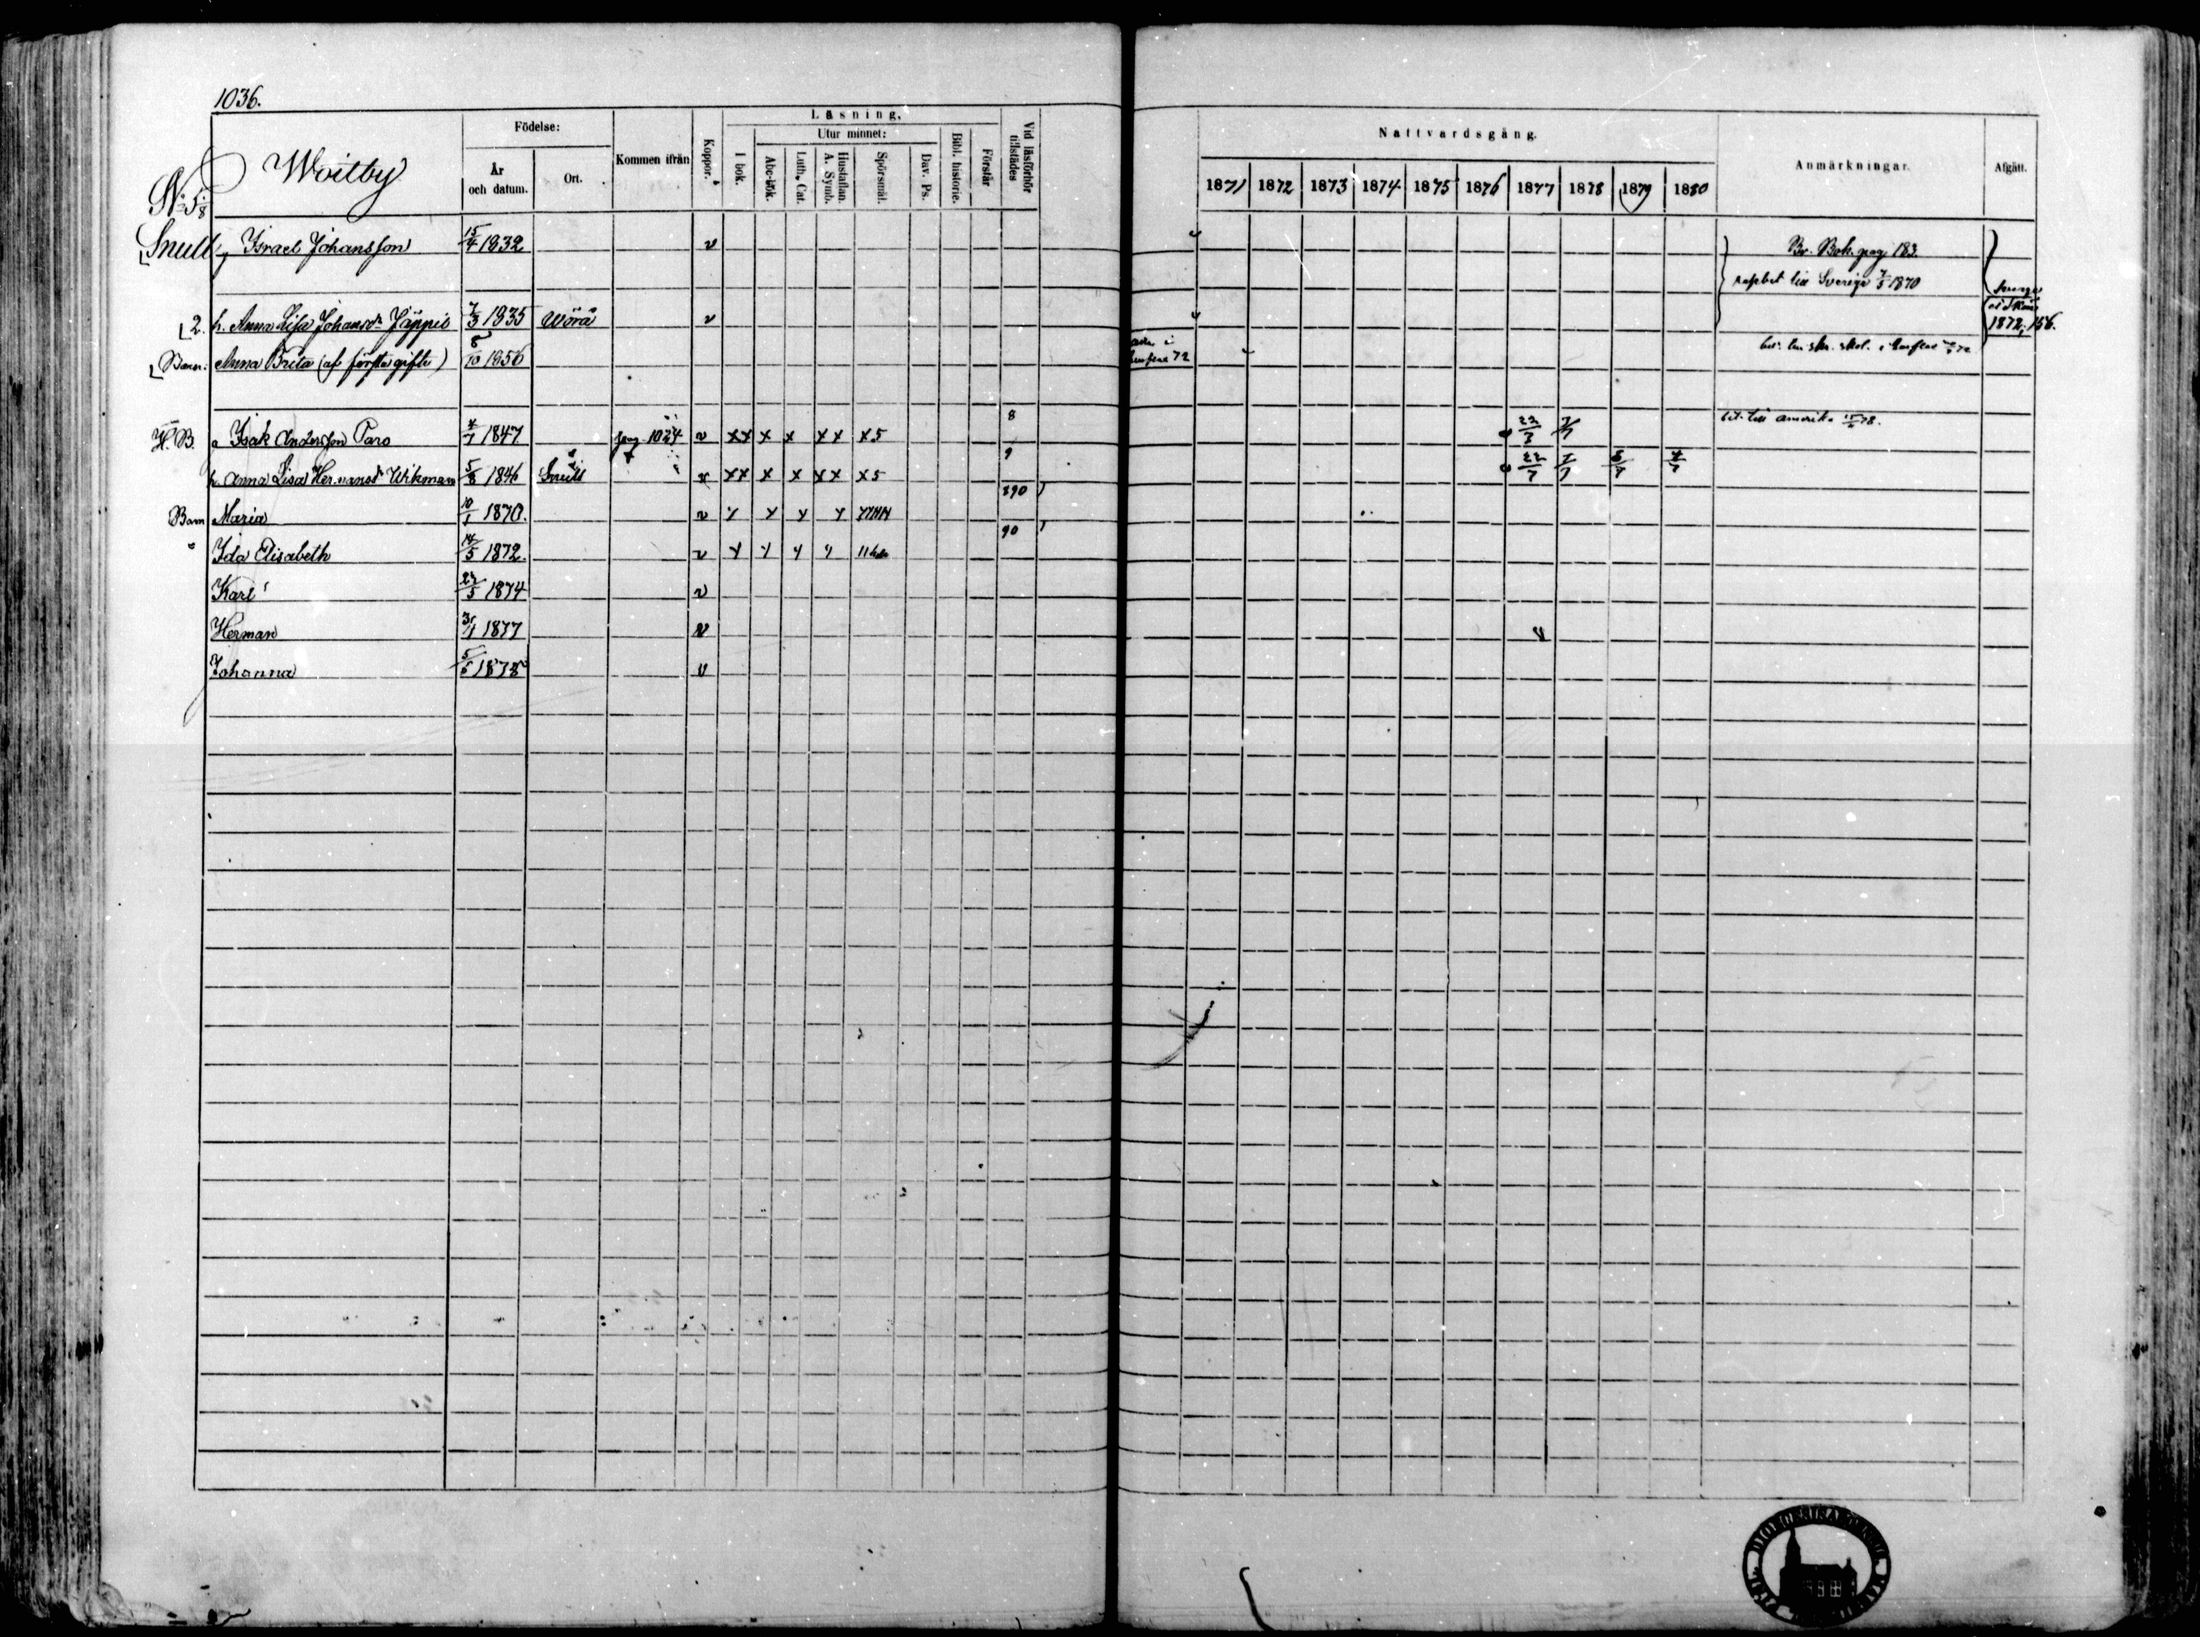 1036.
Woitby
Födelse:
År och datum.
Ort.
Kommen ifrån
Koppor.
Läsning,
I bok.
Utur minnet:
Abc-bok.
Luth. Cat.
Hustaflan. A. Symb.
Spörsmål.
Dav. Ps.
Bibl. historie.
Förstår
Vid läsförhör tillstädes
Nattvardsgång.
1871 1872 1873 1874 1875 1876 1877 1878 1879 1880
Anmärkningar.
Afgått.
No 5/8
Snull
Israel Johansson 15/4 1832 v Br. Bok. pag 183.
till Sverige 7/5 1870
2. h. Anna Lisa Johansdr Jäppis 7/3 1935 Wörå v
1872, 156.
Barn: Anna Brita (af första gifte) 8/10 1856
H.B. a Isak Andersson Paro 4/7 1847 pag 1024 v xx x x xx x5 8 22/7 7/7 bet. till Amerika 78.
h. Anna Lisa Hermansdr Wikman 5/8 1846 Snull v xx x x xx x5 9 22/7 7/7 6/7 4/7
Barn Maria 10/1 1870. v 890
Ida Elisabeth 14/5 1872. v 90
Karl 27/5 1874 v
Herman 31/1 1877 v
Johanna 5/6 1878 v